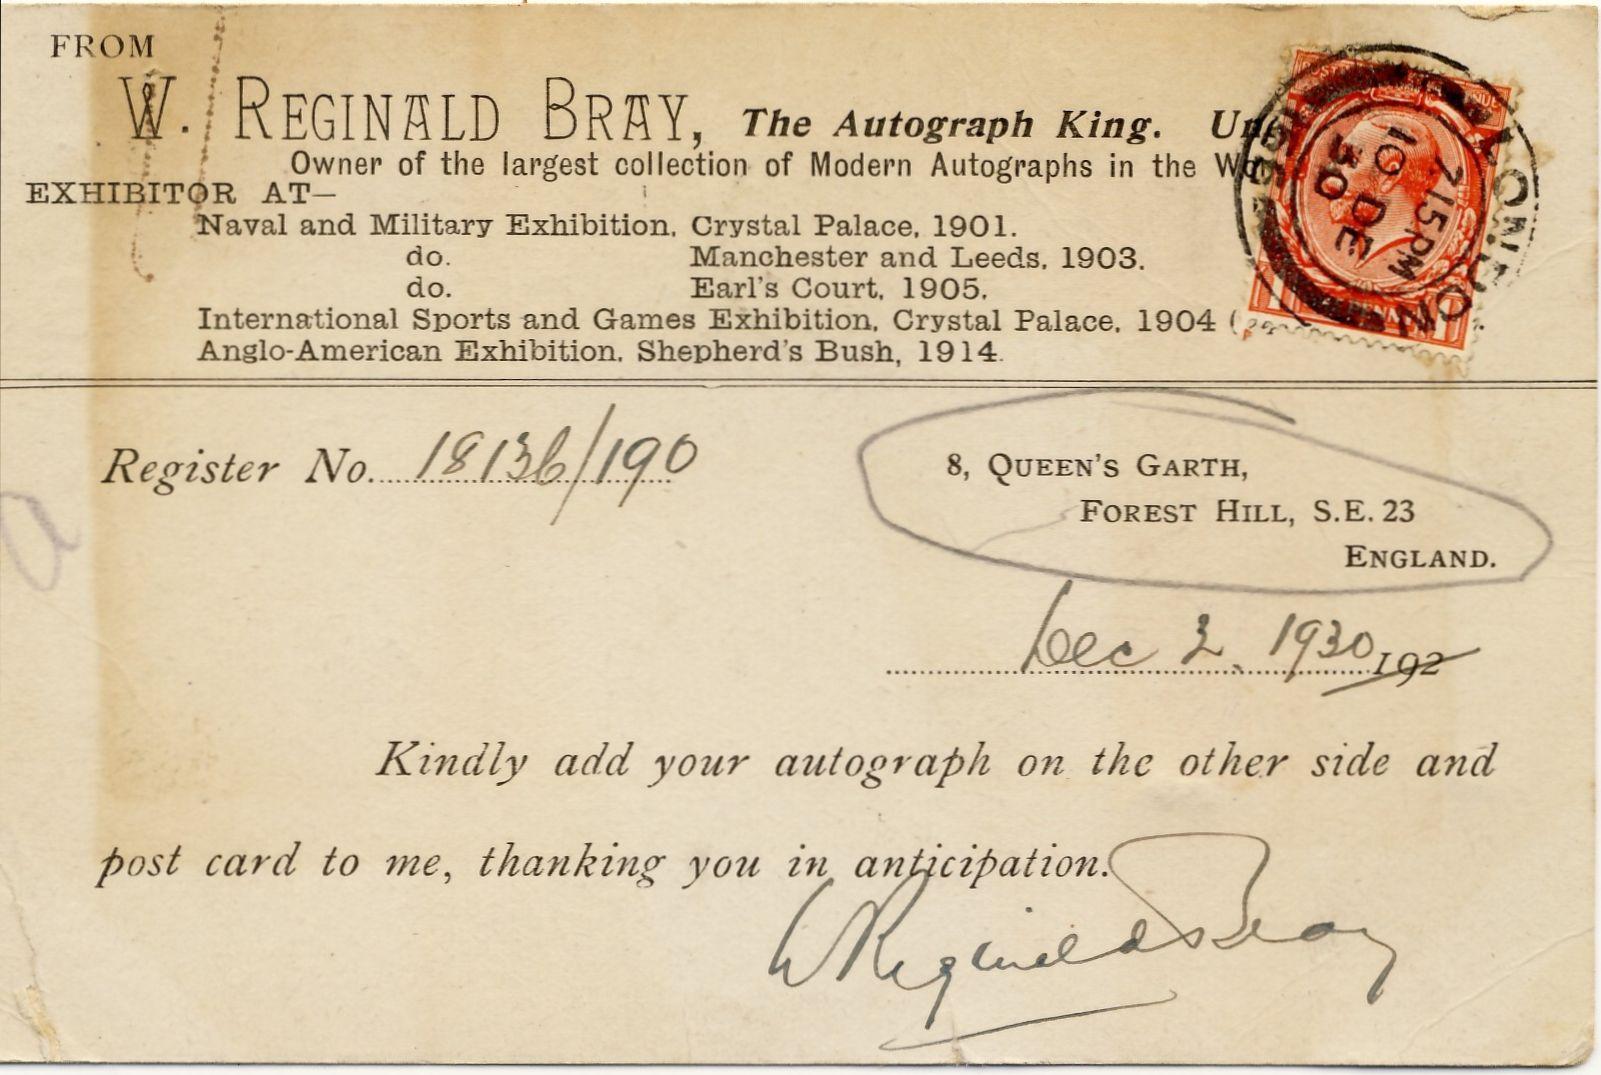 FROM
W. REGINALD BRAY, The Autograph King.
Owner of the largest collection of Modern Autographs in the
EXHIBITOR AT—
Naval and Military Exhibition, Crystal Palace, 1901.
do. Manchester and Leeds, 1903.
do. Earl's Court, 1905.
International Sports and Games Exhibition, Crystal Palace, 1904
Anglo-American Exhibition, Shepherd's Bush, 1914.
7 15 PM
10 DE
30
Register No. 18136/190
8, QUEEN'S GARTH,
FOREST HILL, S.E. 23
ENGLAND.
Dec 2. 1930 192
Kindly add your autograph on the other side and
post card to me, thanking you in anticipation.
W Reginald Bray